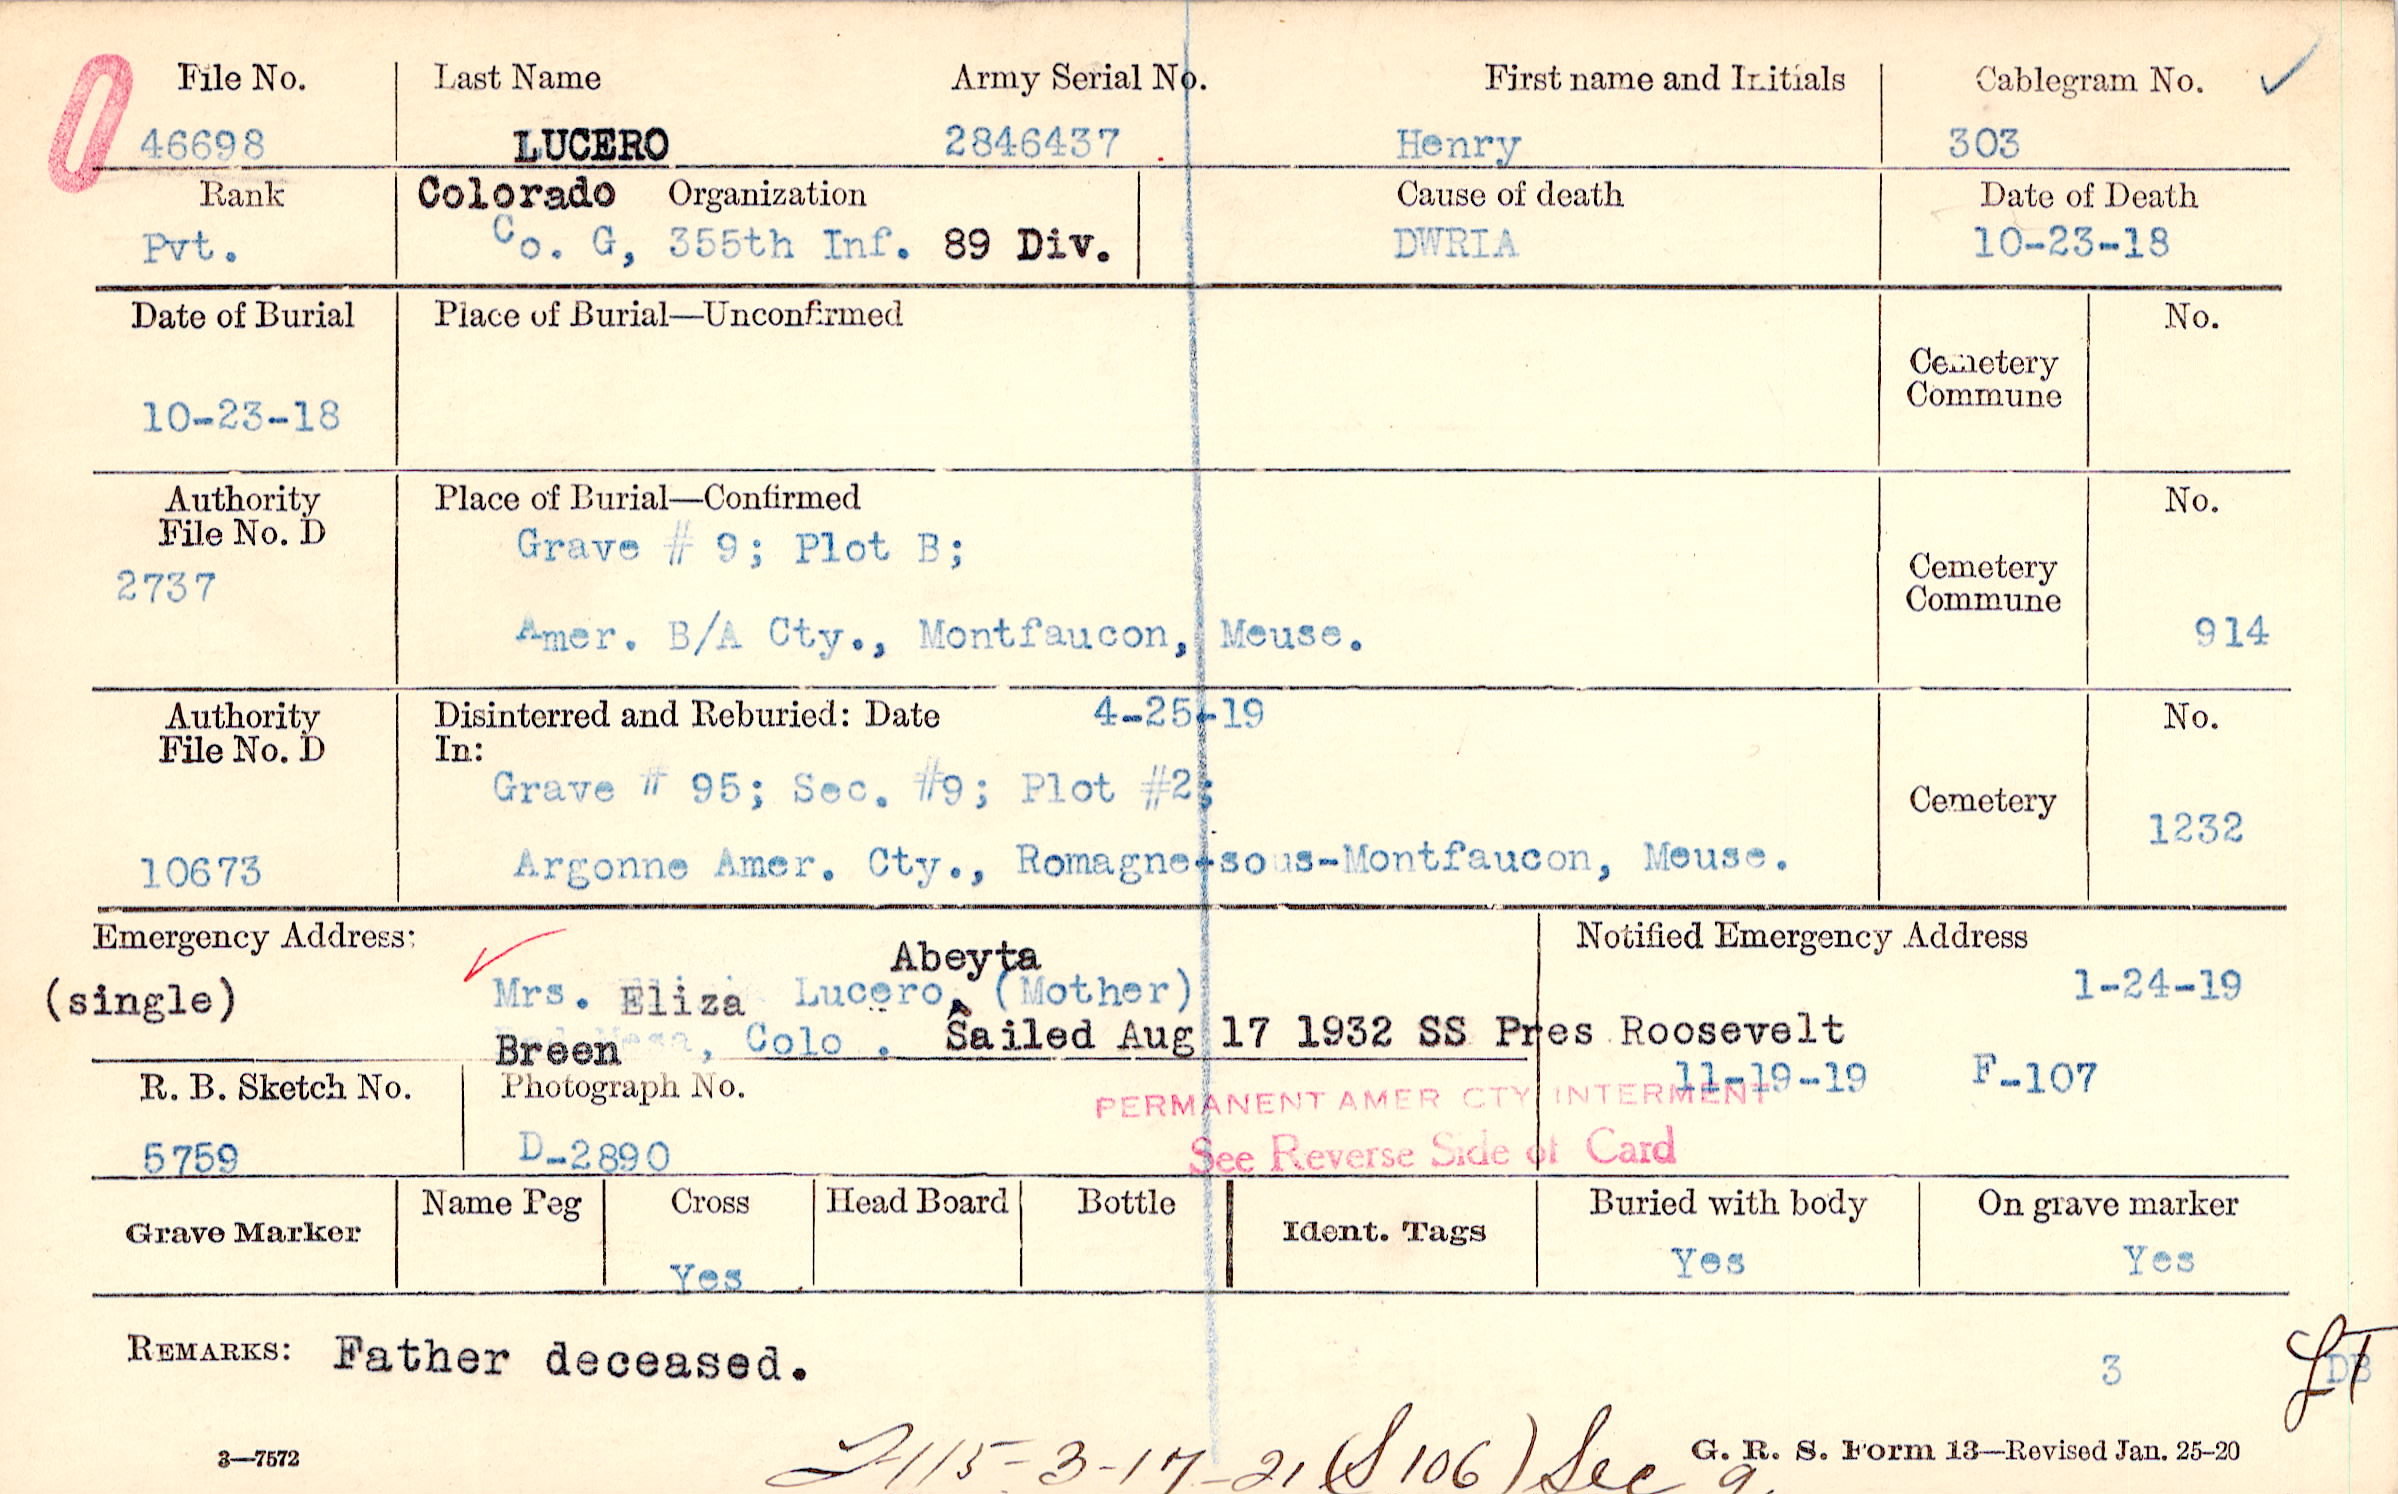 File No. Last Name Army Serial No. First name and Initials Cablegram No.
46698 LUCERO 2846437 Henry 303
Rank Colorado Organization Cause of death Date of Death
Pvt. Co. G, 355th Inf. 89 Div. DWRIA 10-23-18
Date of Burial Place of Burial—Unconfirmed No.
Cemetery
Commune
10-23-18
Authority Place of Burial—Confirmed No.
File No. D
Grave # 9; Plot B;
2737 Cemetery
Commune
Amer. B/A Cty., Montfaucon, Meuse. 914
Authority Disinterred and Reburied: Date 4-25-19 No.
File No. D In:
Grave # 95; Sec. #9; Plot #2; Cemetery
1232
10673 Argonne Amer. Cty., Romagne-sous-Montfaucon, Meuse.
Emergency Address: Notified Emergency Address
Abeyta
(single) Mrs. Eliza Lucero, (Mother) 1-24-19
Breen , Colo . Sailed Aug 17 1932 SS Pres Roosevelt
11-19-19 F-107
R. B. Sketch No. Photograph No.
PERMANENT AMER CTY INTERMENT
5759 D-2890 See Reverse Side of Card
Grave Marker Name Peg Cross Head Board Bottle Ident. Tags Buried with body On grave marker
Yes Yes Yes
REMARKS: Father deceased. 3 DB
LT
3—7572 G. R. S. Form 13—Revised Jan. 25-20
115-3-17-21 (S 106) Sec 9.